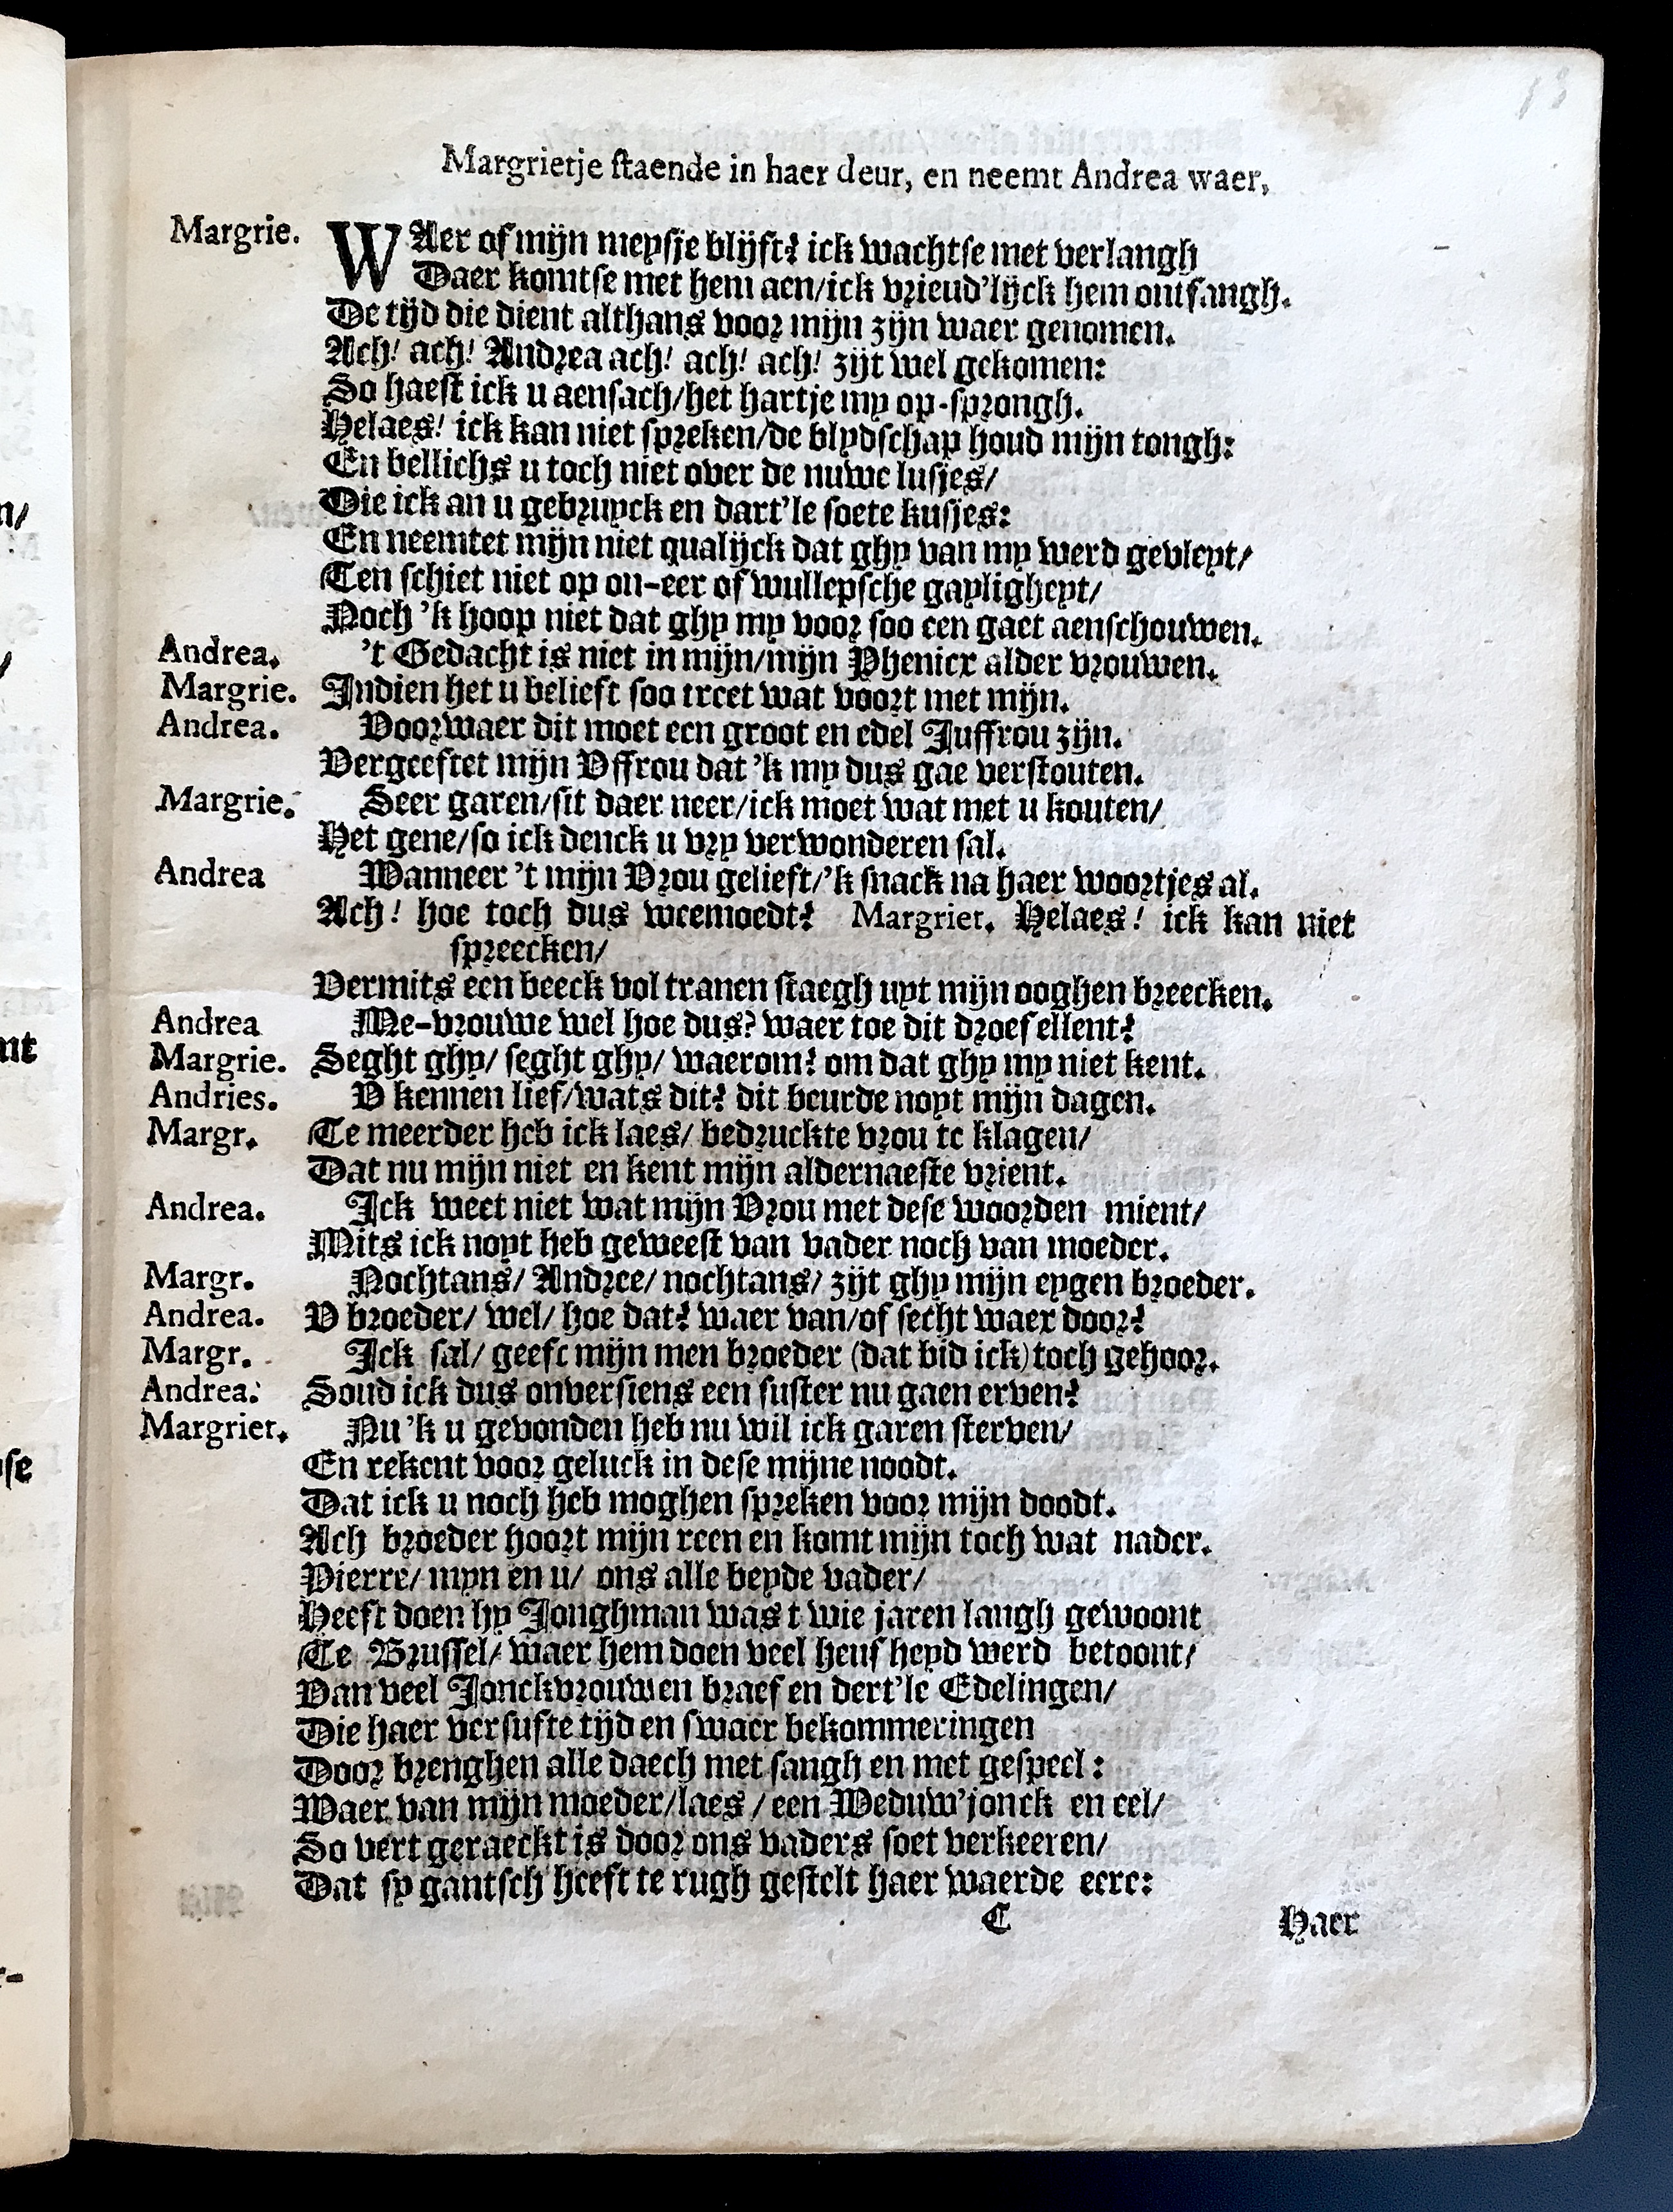 Margrietje staende in haer deur, en neemt Andrea waer,
Margrie. WAer of mijn meysje blijft? ick wachtse met verlangh
Daer komtse met hem aen/ick vrieud'lijck hem ontfangh.
De tijd die dient althans voor mijn zijn waer genomen.
Ach! ach! Andrea ach! ach! ach! zijt wel gekomen:
So haest ick u aensach/het hartje my op-sprongh.
Helaes! ick kan niet spreken/de blydschap houd mijn tongh:
En bellichs u toch niet over de nuwe lusjes/
Die ick an u gebruyck en dart'le soete kusjes:
En neemtet mijn niet qualijck dat ghy van my werd gevleyt/
Ten schiet niet op on-eer of wulleysche gaylighept/
Noch 'k hoop niet dat ghy my voor soo een gaet aenschouwen.
Andrea. 't Gedacht is niet in mijn/mijn Phenicx alder vrouwen.
Margrie. Indien het u belieft soo treet wat voort met mijn.
Andrea. Voorwaer dit moet een groot en edel Juffrou zijn.
Vergeeftet mijn Vffrou dat 'k my dus gae verstouten.
Margrie. Seer garen/sit daer neer/ick moet wat met u kouten/
Het gene/so ick denck u vry verwonderen sal.
Andrea Wanneer 't mijn Vrou gelieft/'k snack na haer woortjes al.
Ach! hoe toch dus weemoedt? Margriet. Helaes! ick kan niet
spreecken/
Vermits een beeck vol tranen staegh uyt mijn ooghen breecken.
Andrea Me-vrouwe wel hoe dus? waer toe dit droef ellent?
Margrie. Seght ghy/ seght ghy/ waerom? om dat ghy my niet kent.
Andries. V kennen lief/wats dit? dit beurde noyt mijn dagen.
Margr. Te meerder heb ick laes/ bedruckte vrou te klagen/
Dat nu mijn niet en kent mijn aldernaeste vrient.
Andrea. Ick weet niet wat mijn Vrou met dese woorden mient/
Mits ick noyt heb geweest van vader noch van moeder.
Margr. Nochtans/ Andree/ nochtans/ zijt ghy mijn eygen broeder.
Andrea. V broeder/ wel/ hoe dat? waer van/of secht waer door?
Margr. Ick sal/ geefc mijn men broeder (dat bid ick) toch gehoor.
Andrea. Soud ick dus onversiens een suster nu gaen erven?
Margriet. Nu 'k u gevonden heb nu wil ick garen sterven/
En rekent voor geluck in dese mijne noodt.
Dat ick u noch heb moghen spreken voor mijn doodt.
Ach broeder hoort mijn reen en komt mijn toch wat nader.
Pierre/ myn en u/ ons alle beyde vader/
Heeft doen hy Jonghman was t wie jaren langh gewoont
Te Brussel/ waer hem doen veel heus heyd werd betoont/
Van veel Jonckvrouwen braef en dert'le Edelingen/
Die haer versufte tijd en swaer bekommeringen
Door brenghen alle daech met sangh en met gespeel:
Waer van mijn moeder/laes/ een Weduw' jonck en eel/
So vert geraeckt is door ons vaders soet verkeeren/
Dat sy gantsch heeft te rugh gestelt haer waerde eere:
C Haer